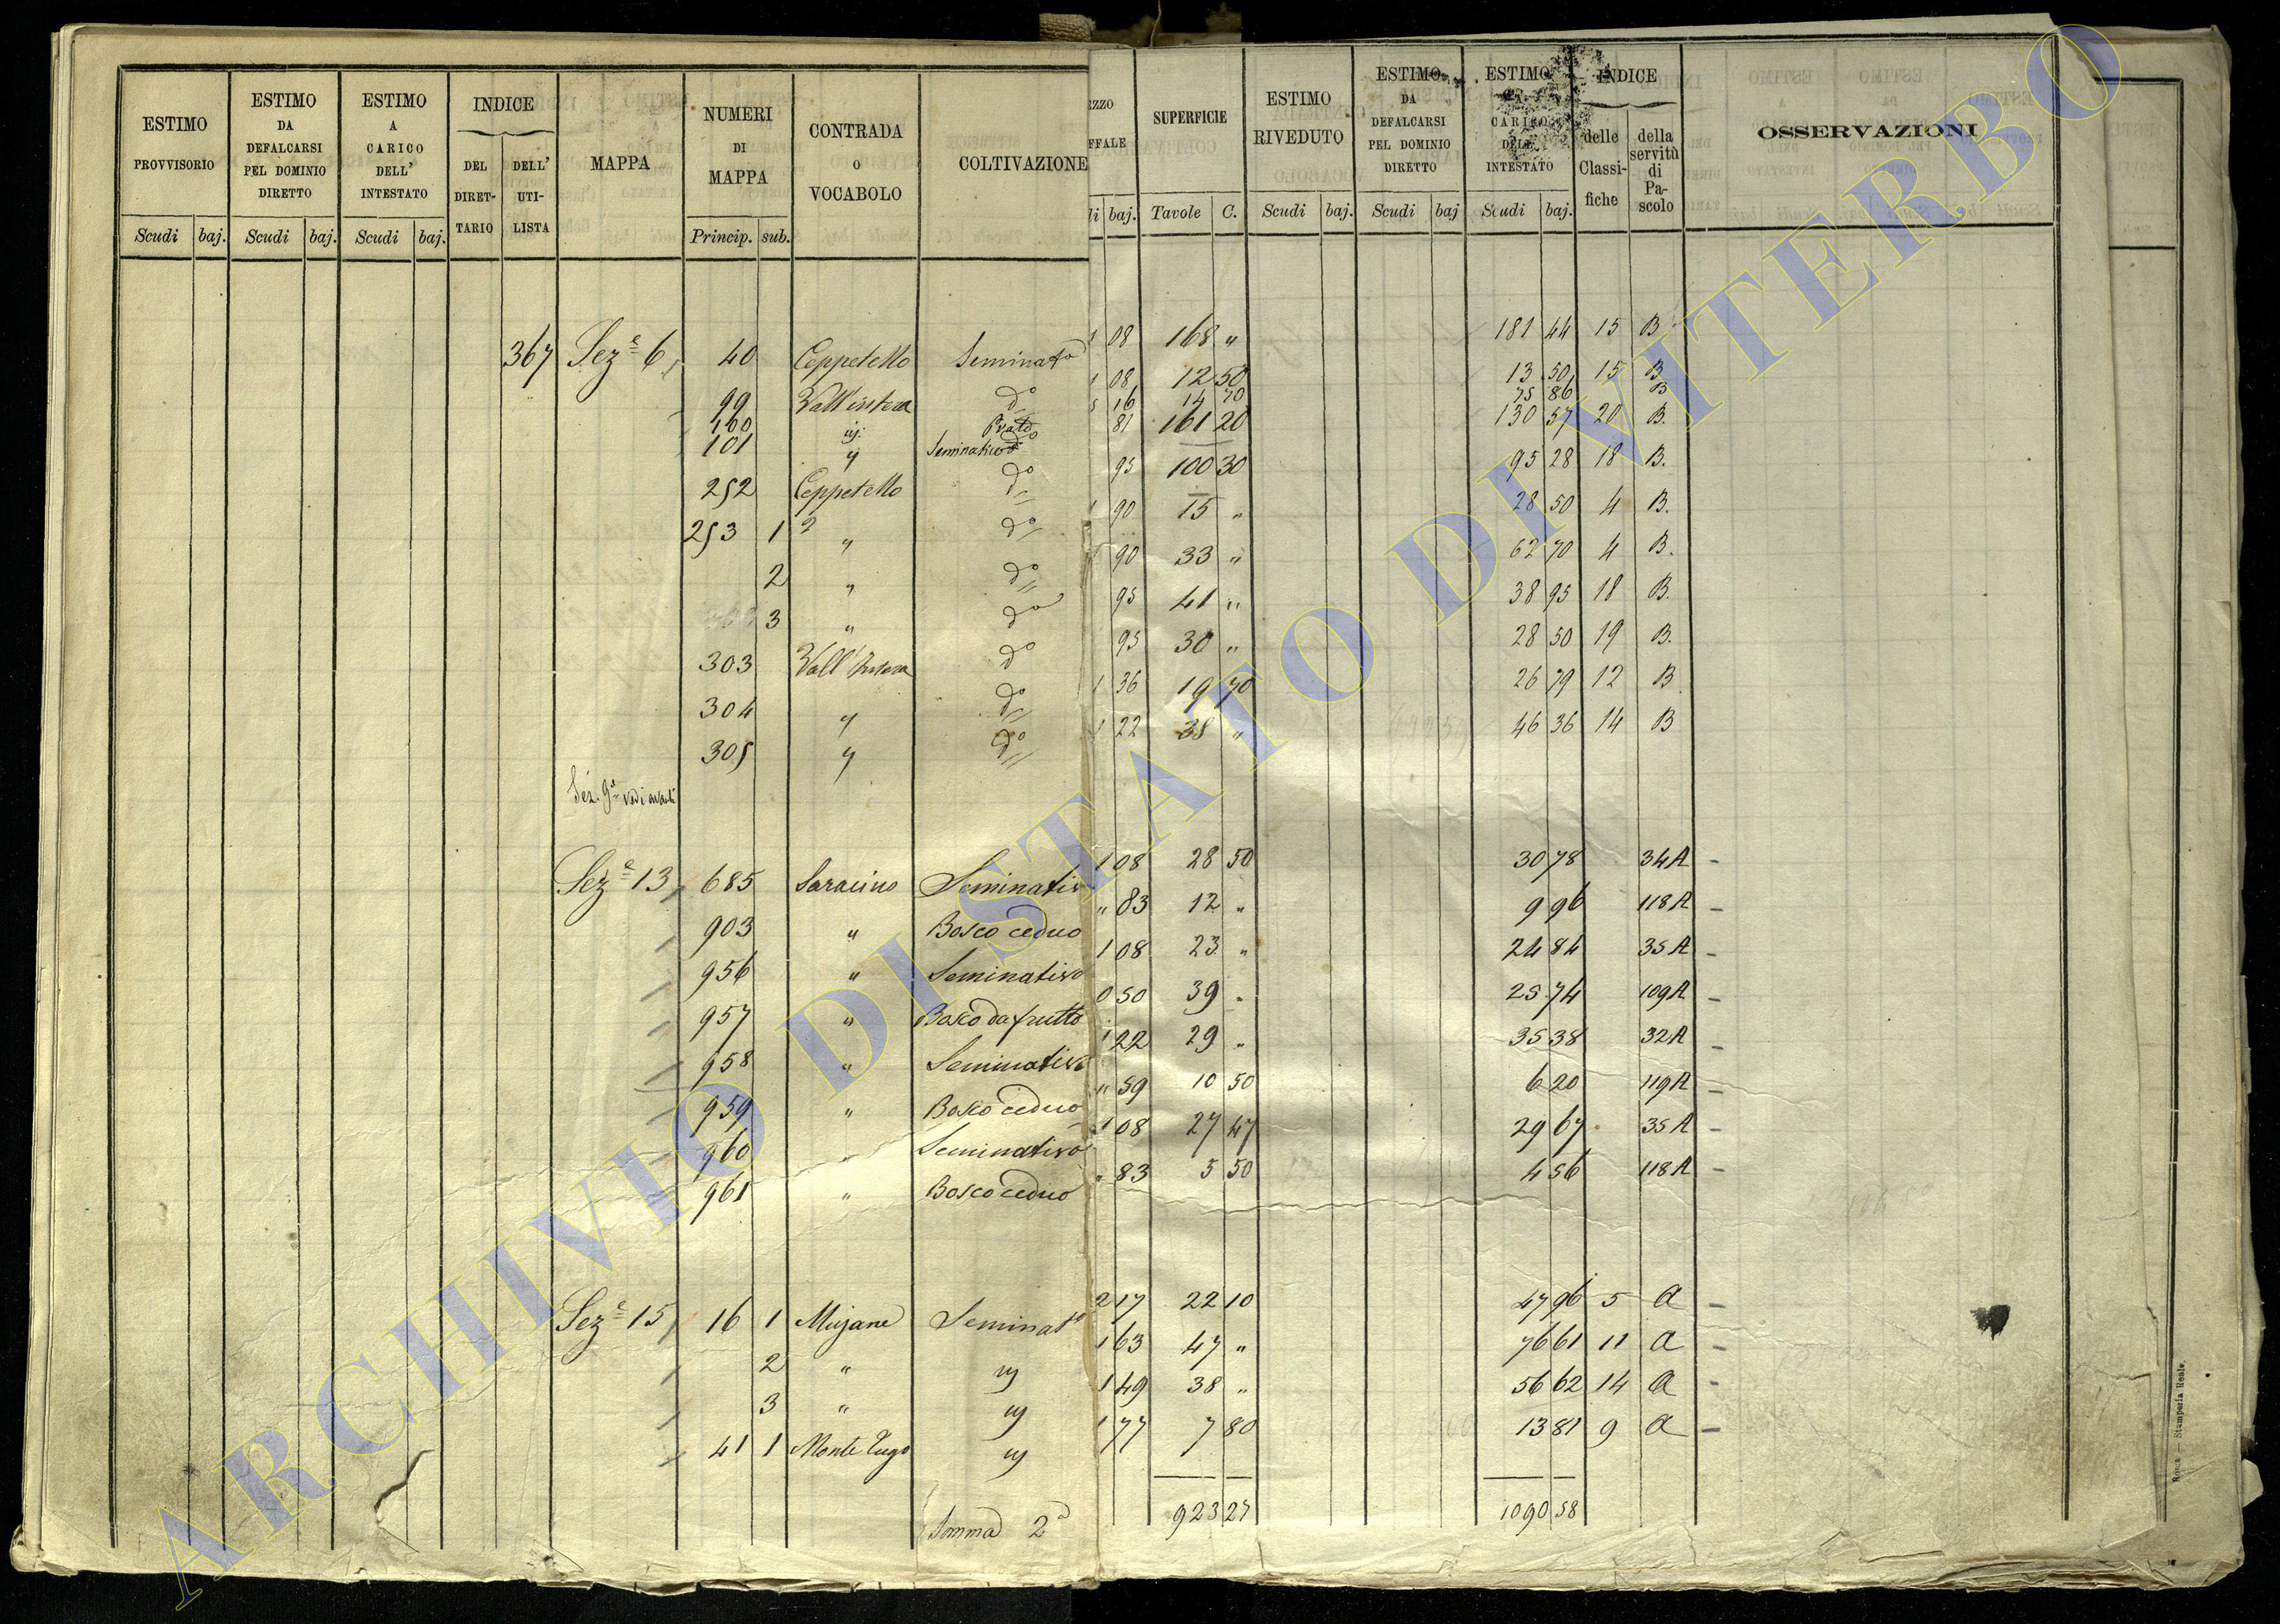 ESTIMO PROVVISORIO
ESTIMO DA DEFALCARSI PEL DOMINIO DIRETTO
ESTIMO A CARICO DELL' INTESTATO
INDICE
DEL DIRET-TARIO
DELL' UTI-LISTA
MAPPA
NUMERI DI MAPPA
CONTRADA O VOCABOLO
COLTIVAZIONE
EZZO
FFALE
SUPERFICIE
ESTIMO RIVEDUTO
ESTIMO DA DEFALCARSI PEL DOMINIO DIRETTO
ESTIMO A CARICO DELL' INTESTATO
INDICE
delle Classi-fiche
della servitù di Pa-scolo
OSSERVAZIONI
Scudi baj. Scudi baj. Scudi baj. Princip. sub. di baj. Tavole C. Scudi baj. Scudi baj Scudi baj.
367 Sez.e 6 40 Ceppetello Seminato 1 08 168 " 181 44 15 B
99 Vall'intera do 1 08 12 50 13 50 15 B
100 Prato 5 16 14 70 75 86 B
101 " Seminativo 81 161 20 130 57 20 B.
252 Ceppetello do 95 100 30 95 28 18 B.
253 1 " do 1 90 15 " 28 50 4 B.
2 " do 1 90 33 " 62 70 4 B.
3 " do 95 41 " 38 95 18 B.
303 Vall'Intera do 95 30 " 28 50 19 B.
304 " do 1 36 19 70 26 79 12 B
305 " do 1 22 38 " 46 36 14 B
Sez. 9a vedi avanti
Sez.e 13 685 Saracino Seminativo 1 08 28 50 30 78 34 A -
903 " Bosco ceduo " 83 12 " 9 96 118 A -
956 " Seminativo 1 08 23 " 24 84 35 A -
957 " Bosco da frutto 0 50 39 " 25 74 109 A -
958 " Seminativo 1 22 29 " 35 38 32 A -
959 " Bosco ceduo " 59 10 50 6 20 119 A -
960 " Seminativo 1 08 27 47 29 67 35 A -
961 " Bosco ceduo " 83 5 50 4 56 118 A -
Sez.e 15 16 1 Mujane Seminato 2 17 22 10 47 96 5 A -
2 " 1 63 47 " 76 61 11 A -
3 " 1 49 38 " 56 62 14 A -
41 1 Monte Lugo 1 77 7 80 13 81 9 A -
Somma 2a 923 27 1090 58
Roma — Stamperia Reale.
ARCHIVIO DI STATO DI VITERBO